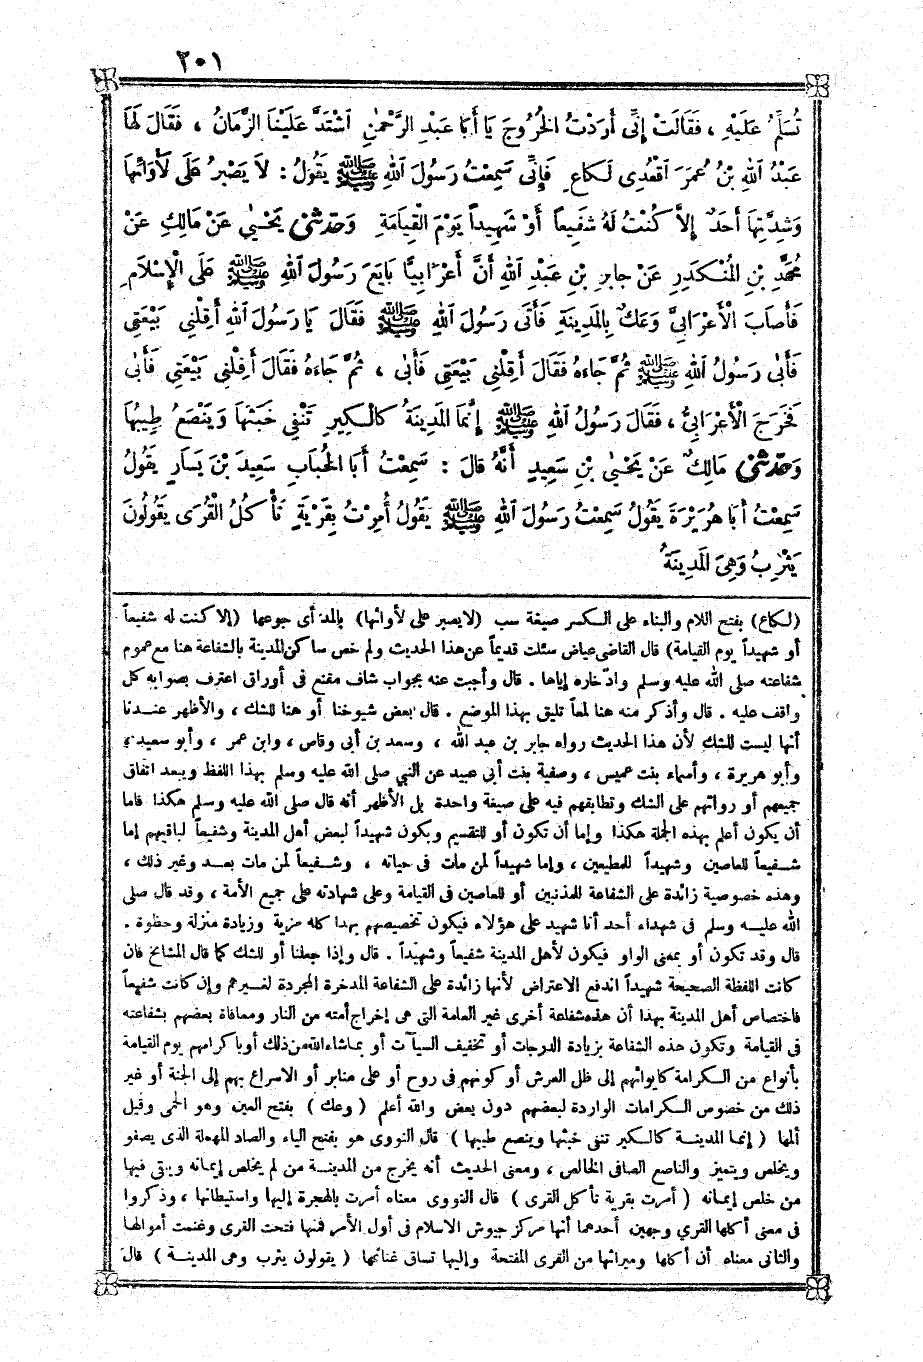 ٢٠١
تُسَلِّمُ عَلَيْهِ ، فَقَالَتْ إِنِّى أَرَدْتُ الْخُرُوجَ يَا أَبَا عَبْدِ الرَّحْمٰنِ اشْتَدَّ عَلَيْنَا الزَّمَانُ ، فَقَالَ لَهَا
عَبْدُ اللهِ بْنُ عُمَرَ اقْعُدِى لَكَاعِ فَإِنِّى سَمِعْتُ رَسُولَ اللهِ ﷺ يَقُولُ : لاَ يَصْبِرُ عَلَى لَأْوَائِهَا
وَشِدَّتِهَا أَحَدٌ إِلاَّ كُنْتُ لَهُ شَفِيعاً أَوْ شَهِيداً يَوْمَ الْقِيَامَةِ وَحَدَّثَنِى يَحْيٰى عَنْ مَالِكٍ عَنْ
مُحَمَّدِ بْنِ الْمُنْكَدِرِ عَنْ جَابِرِ بْنِ عَبْدِ اللهِ أَنَّ أَعْرَابِيًّا بَايَعَ رَسُولَ اللهِ ﷺ عَلَى الْإِسْلاَمِ
فَأَصَابَ الْأَعْرَابِىَّ وَعَكٌ بِالْمَدِينَةِ فَأَتَى رَسُولَ اللهِ ﷺ فَقَالَ يَا رَسُولَ اللهِ أَقِلْنِى بَيْعَتِى
فَأَبٰى رَسُولُ اللهِ ﷺ ثُمَّ جَاءَهُ فَقَالَ أَقِلْنِى بَيْعَتِى فَأَبٰى ، ثُمَّ جَاءَهُ فَقَالَ أَقِلْنِى بَيْعَتِى فَأَبٰى
فَخَرَجَ الْأَعْرَابِىُّ ، فَقَالَ رَسُولُ اللهِ ﷺ إِنَّمَا الْمَدِينَةُ كَالْكِيرِ تَنْفِى خَبَثَهَا وَيَنْصَعُ طِيبُهَا
وَحَدَّثَنِى مَالِكٌ عَنْ يَحْيٰى بْنِ سَعِيدٍ أَنَّهُ قَالَ : سَمِعْتُ أَبَا الْحُبَابِ سَعِيدَ بْنَ يَسَارٍ يَقُولُ
سَمِعْتُ أَبَا هُرَيْرَةَ يَقُولُ سَمِعْتُ رَسُولَ اللهِ ﷺ يَقُولُ أُمِرْتُ بِقَرْيَةٍ تَأْكُلُ الْقُرَى يَقُولُونَ
يَثْرِبُ وَهِىَ الْمَدِينَةُ
(لكاع) بفتح اللام والبناء على الكسر صيغة سب (لا يصبر على لأوائها) بالمد أى جوعها (إلا كنت له شفيعاً
أو شهيداً يوم القيامة) قال القاضى عياض سئلت قديماً عن هذا الحديث ولم خص ساكن المدينة بالشفاعة هنا مع عموم
شفاعته صلى الله عليه وسلم وادّخاره إياها . قال وأجبت عنه بجواب شاف مقنع فى أوراق اعترف بصوابه كل
واقف عليه . قال وأذكر منه هنا لمعاً تليق بهذا الموضع . قال بعض شيوخنا أو هنا للشك ، والأظهر عندنا
أنها ليست للشك لأن هذا الحديث رواه جابر بن عبد الله ، وسعد بن أبى وقاص ، وابن عمر ، وأبو سعيد ،
وأبو هريرة ، وأسماء بنت عميس ، وصفية بنت أبى عبيد عن النبي صلى الله عليه وسلم بهذا اللفظ ويبعد اتفاق
جميعهم أو رواتهم على الشك وتطابقهم فيه على صيغة واحدة بل الأظهر أنه قال صلى الله عليه وسلم هكذا فاما
أن يكون أعلم بهذه الجملة هكذا وإما أن تكون أو للتقسيم ويكون شهيداً لبعض أهل المدينة وشفيعاً لباقيهم إما
شفيعاً للعاصين وشهيداً للمطيعين ، وإما شهيداً لمن مات فى حياته ، وشفيعاً لمن مات بعد وغير ذلك ،
وهذه خصوصية زائدة على الشفاعة للمذنبين أو للعاصين فى القيامة وعلى شهادته على جميع الأمة ، وقد قال صلى
الله عليه وسلم فى شهداء أحد أنا شهيد على هؤلاء فيكون تخصيصهم بهذا كله مزية وزيادة منزلة وحظوة .
قال وقد تكون أو بمعنى الواو فيكون لأهل المدينة شفيعاً وشهيداً . قال وإذا جعلنا أو للشك كما قال المشايخ فان
كانت اللفظة الصحيحة شهيداً اندفع الاعتراض لأنها زائدة على الشفاعة المدخرة المجردة لغيرهم وإن كانت شفيعاً
فاختصاص أهل المدينة بهذا أن هذه شفاعة أخرى غير العامة التى هى إخراج أمته من النار ومعافاة بعضهم بشفاعته
فى القيامة وتكون هذه الشفاعة بزيادة الدرجات أو تخفيف السيآت أو بماشاءالله من ذلك أو باكرامهم يوم القيامة
بأنواع من الكرامة كايوائهم إلى ظل العرش أو كونهم فى روح أو على منابر أو الاسراع بهم إلى الجنة أو غير
ذلك من خصوص الكرامات الواردة لبعضهم دون بعض والله أعلم ( وعك ) بفتح العين وهو الحمى وقيل
ألمها ( إنما المدينة كالكير تنفى خبثها وينصع طيبها ) قال النووى هو بفتح الياء والصاد المهملة الذى يصفو
ويخلص ويتميز والناصع الصافى الخالص ، ومعنى الحديث أنه يخرج من المدينة من لم يخلص إيمانه ويبقى فيها
من خلص إيمانه ( أمرت بقرية تأكل القرى ) قال النووى معناه أمرت بالهجرة إليها واستيطانها ، وذكروا
فى معنى أكلها القرى وجهين أحدهما أنها مركز جيوش الاسلام فى أول الأمر فمنها فتحت القرى وغنمت أموالها
والثانى معناه أن أكلها وميراثها من القرى المفتحة وإليها تساق غنائمها ( يقولون يثرب وهى المدينة ) قال